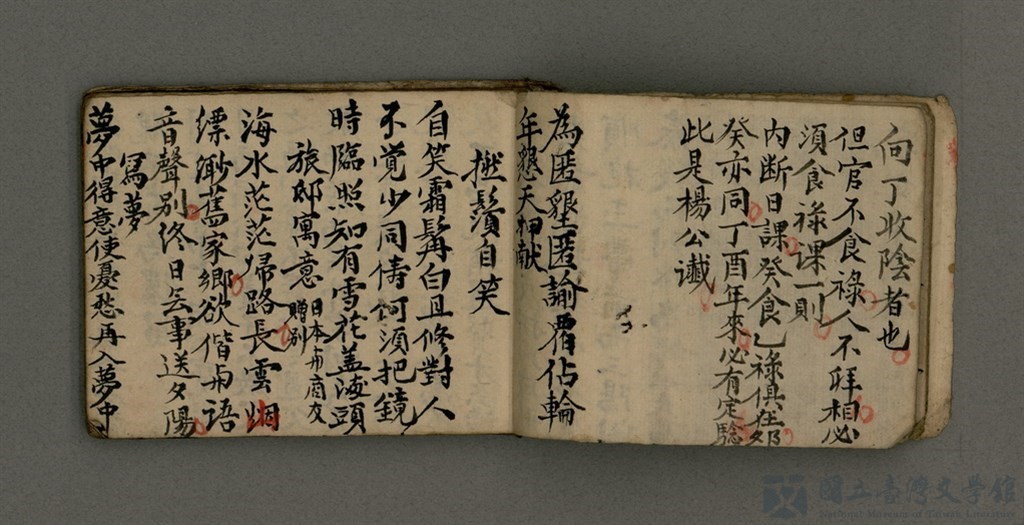 向丁收陰者也
但官不食祿人不拜相必
須食祿課一則
內断日課癸食乙祿俱在
癸亦同丁酉年來必有定驗
此是楊公讖
為匿墾匿諭覆佔輪
年懇天神献
撚鬚自笑
自笑霜髯白且修對人
不覚少同儔何須把鏡
時臨照知有雪花盖滿頭
旅邸寓意 日本布商友
贈别
海水茫茫帰路長雲烟
縹渺舊家鄉欲偕与語
音聲别終日無事送夕陽
寫夢
夢中得意使憂愁再入夢中
國立臺灣文學館
National Museum of Taiwan Literature